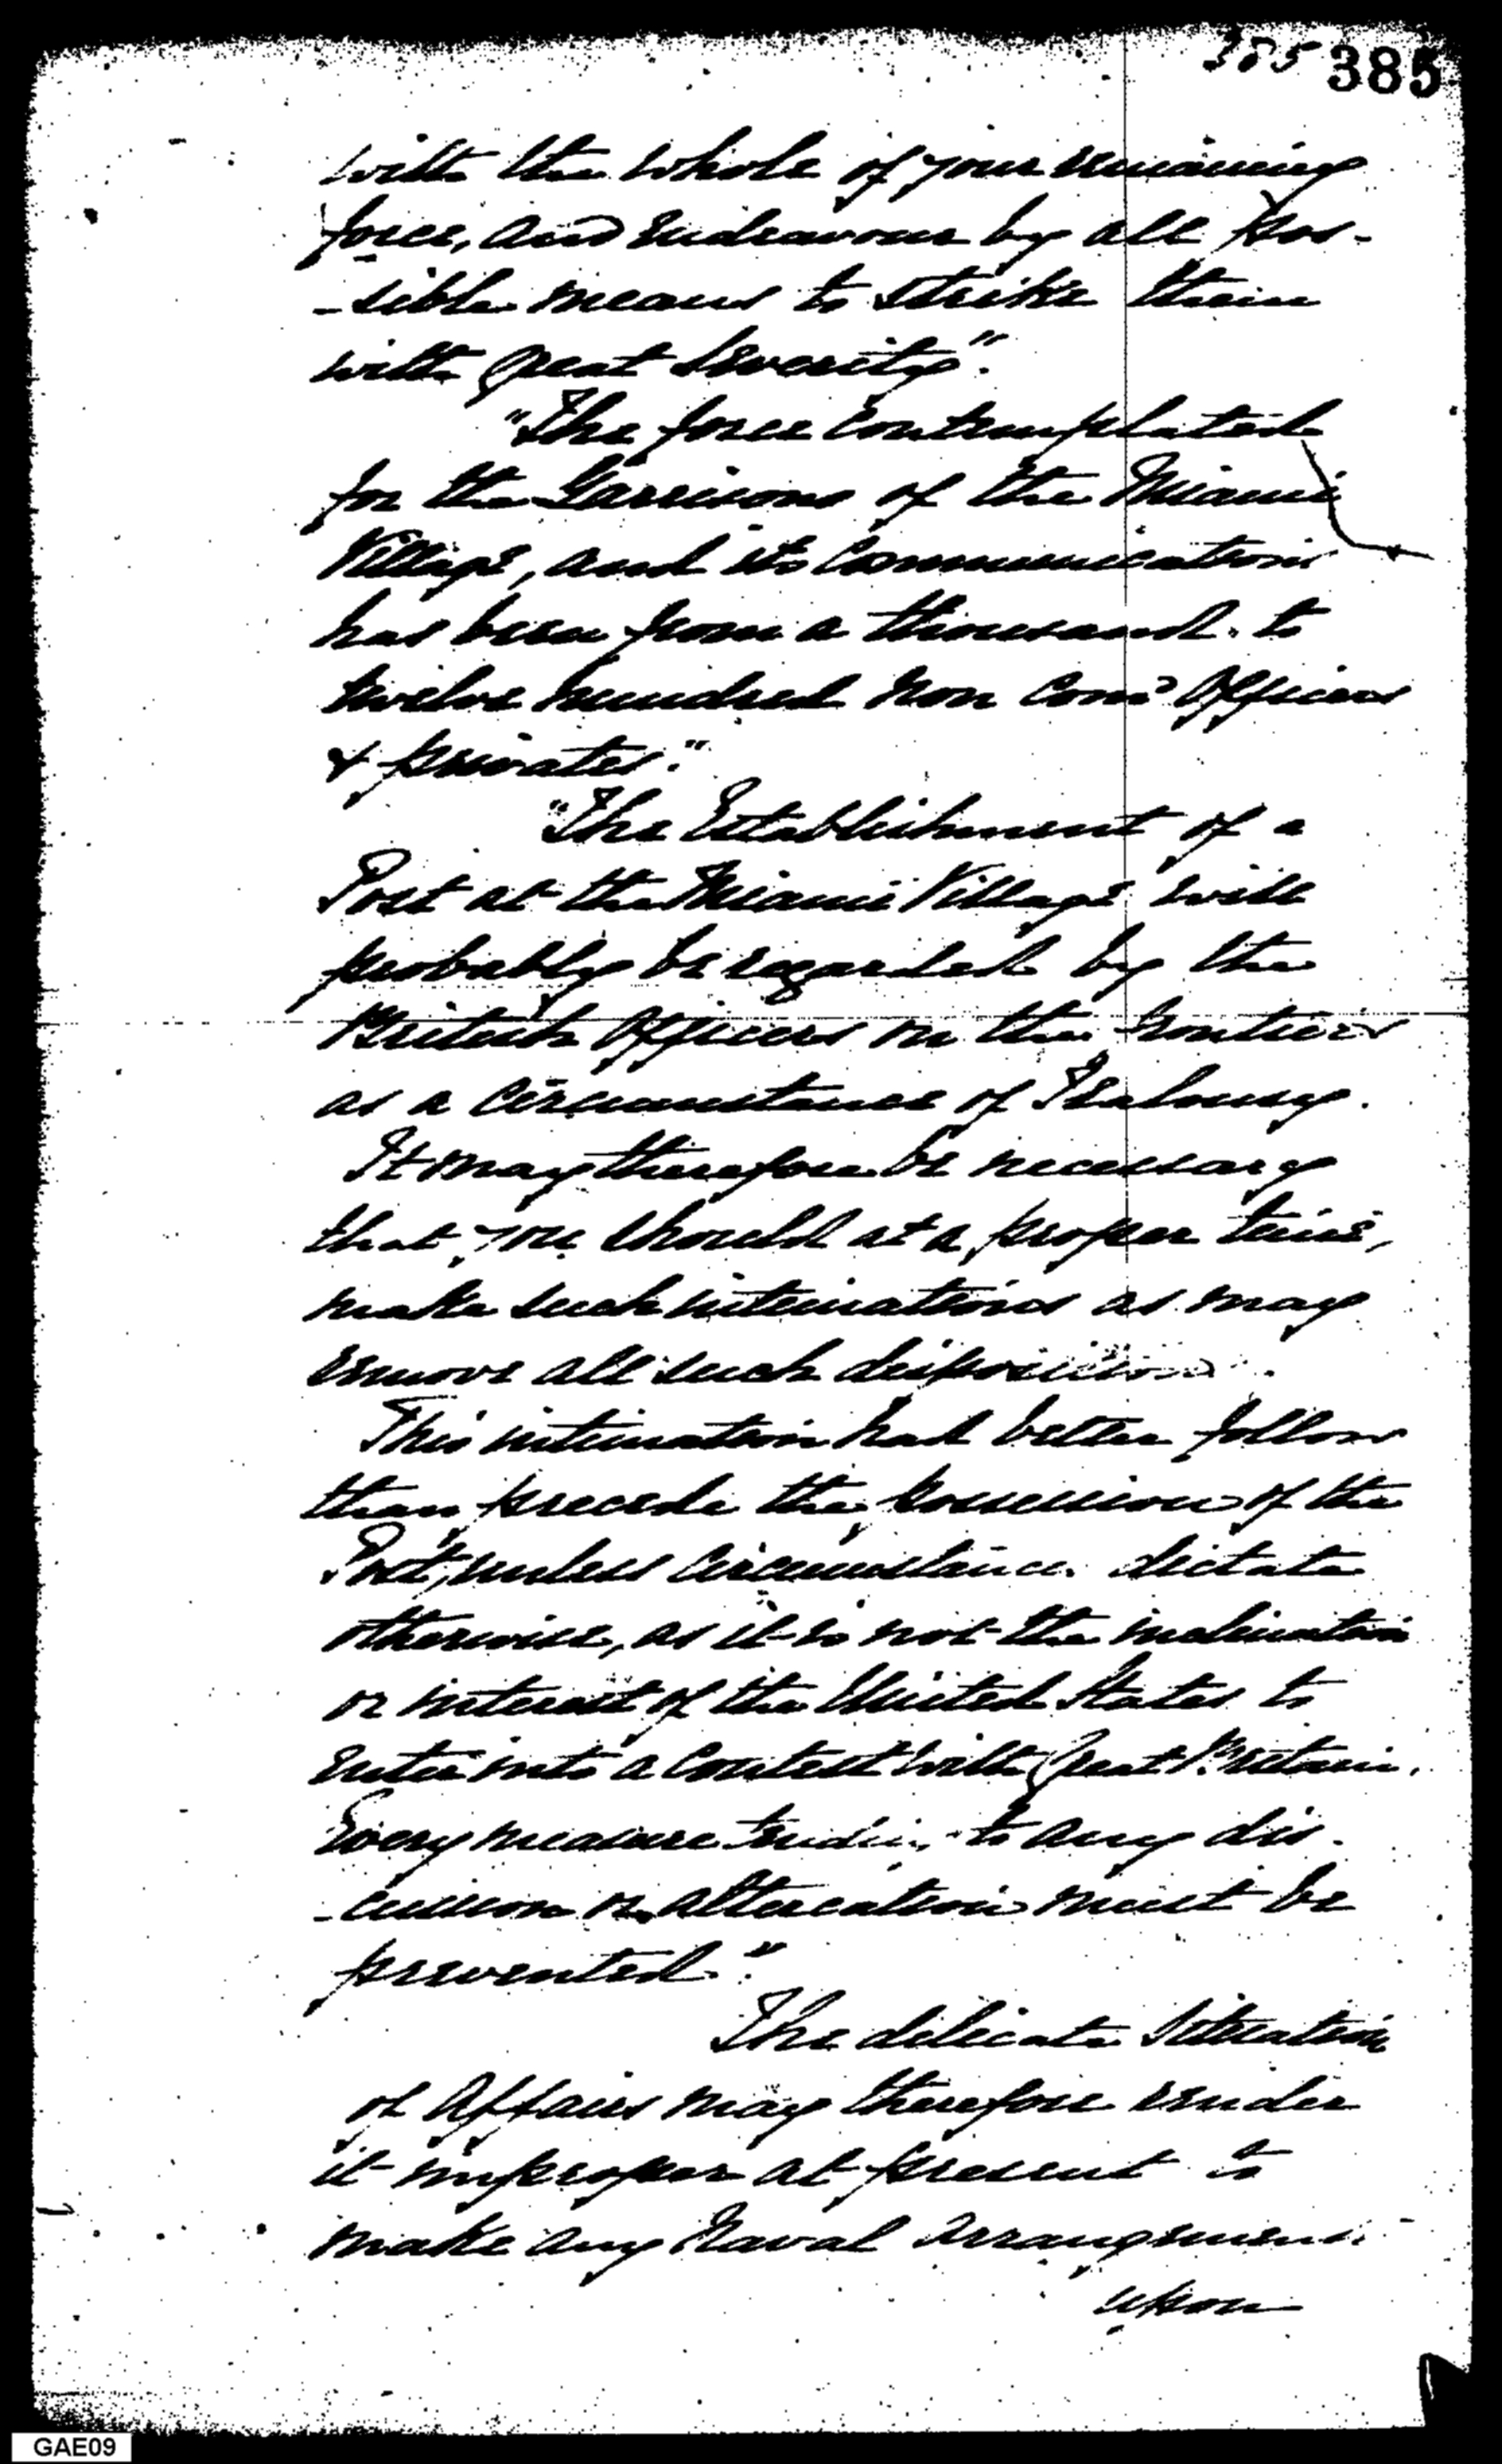 385 385
with the whole of your remaining
force, and endeavour by all pos-
-sible means to strike them
with great Severity".
"The force Contemplated
for the Garrisons of the Miami
Village, and its Communications
has been from a thousand to
twelve hundred non Comd Officers
& privates."
"The Establishment of a
Post at the Miami Village will
probably be regarded by the
British Officers on the frontiers
as a Circumstance of Jealousy.
It may therefore be necessary
that you should at a proper time,
make such intimations as may
remove all such dispositions.
This intimation had better follow
than precede the possession of the
Post, unless Circumstances dictate
otherwise, as it is not the inclination
or interest of the United States to
enter into a Contest with Great Britain.
Every measure tending to any dis-
-cussion or altercation must be
prevented."
The delicate situation
of Affairs may therefore render
it improper at present to
make any Naval arrangement
upon
GAE09